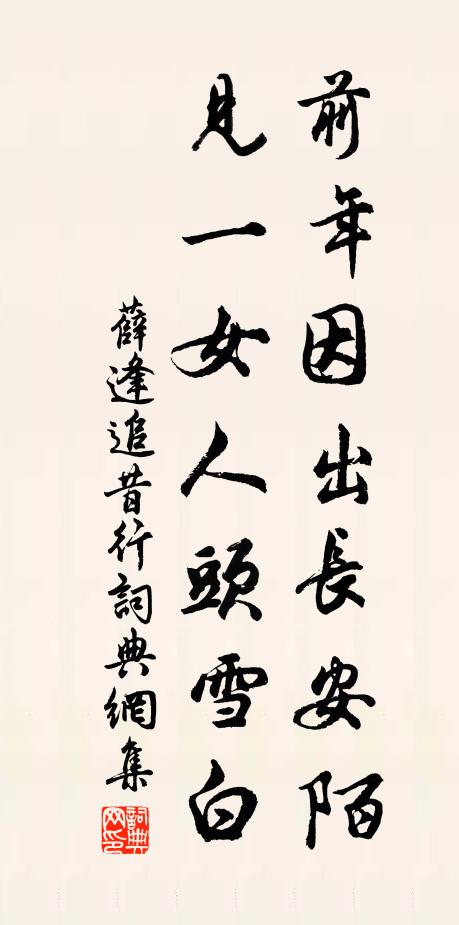 前年因出長安陌
見一女人頭雪白
薛逢追昔行詞典網集
詞典網印